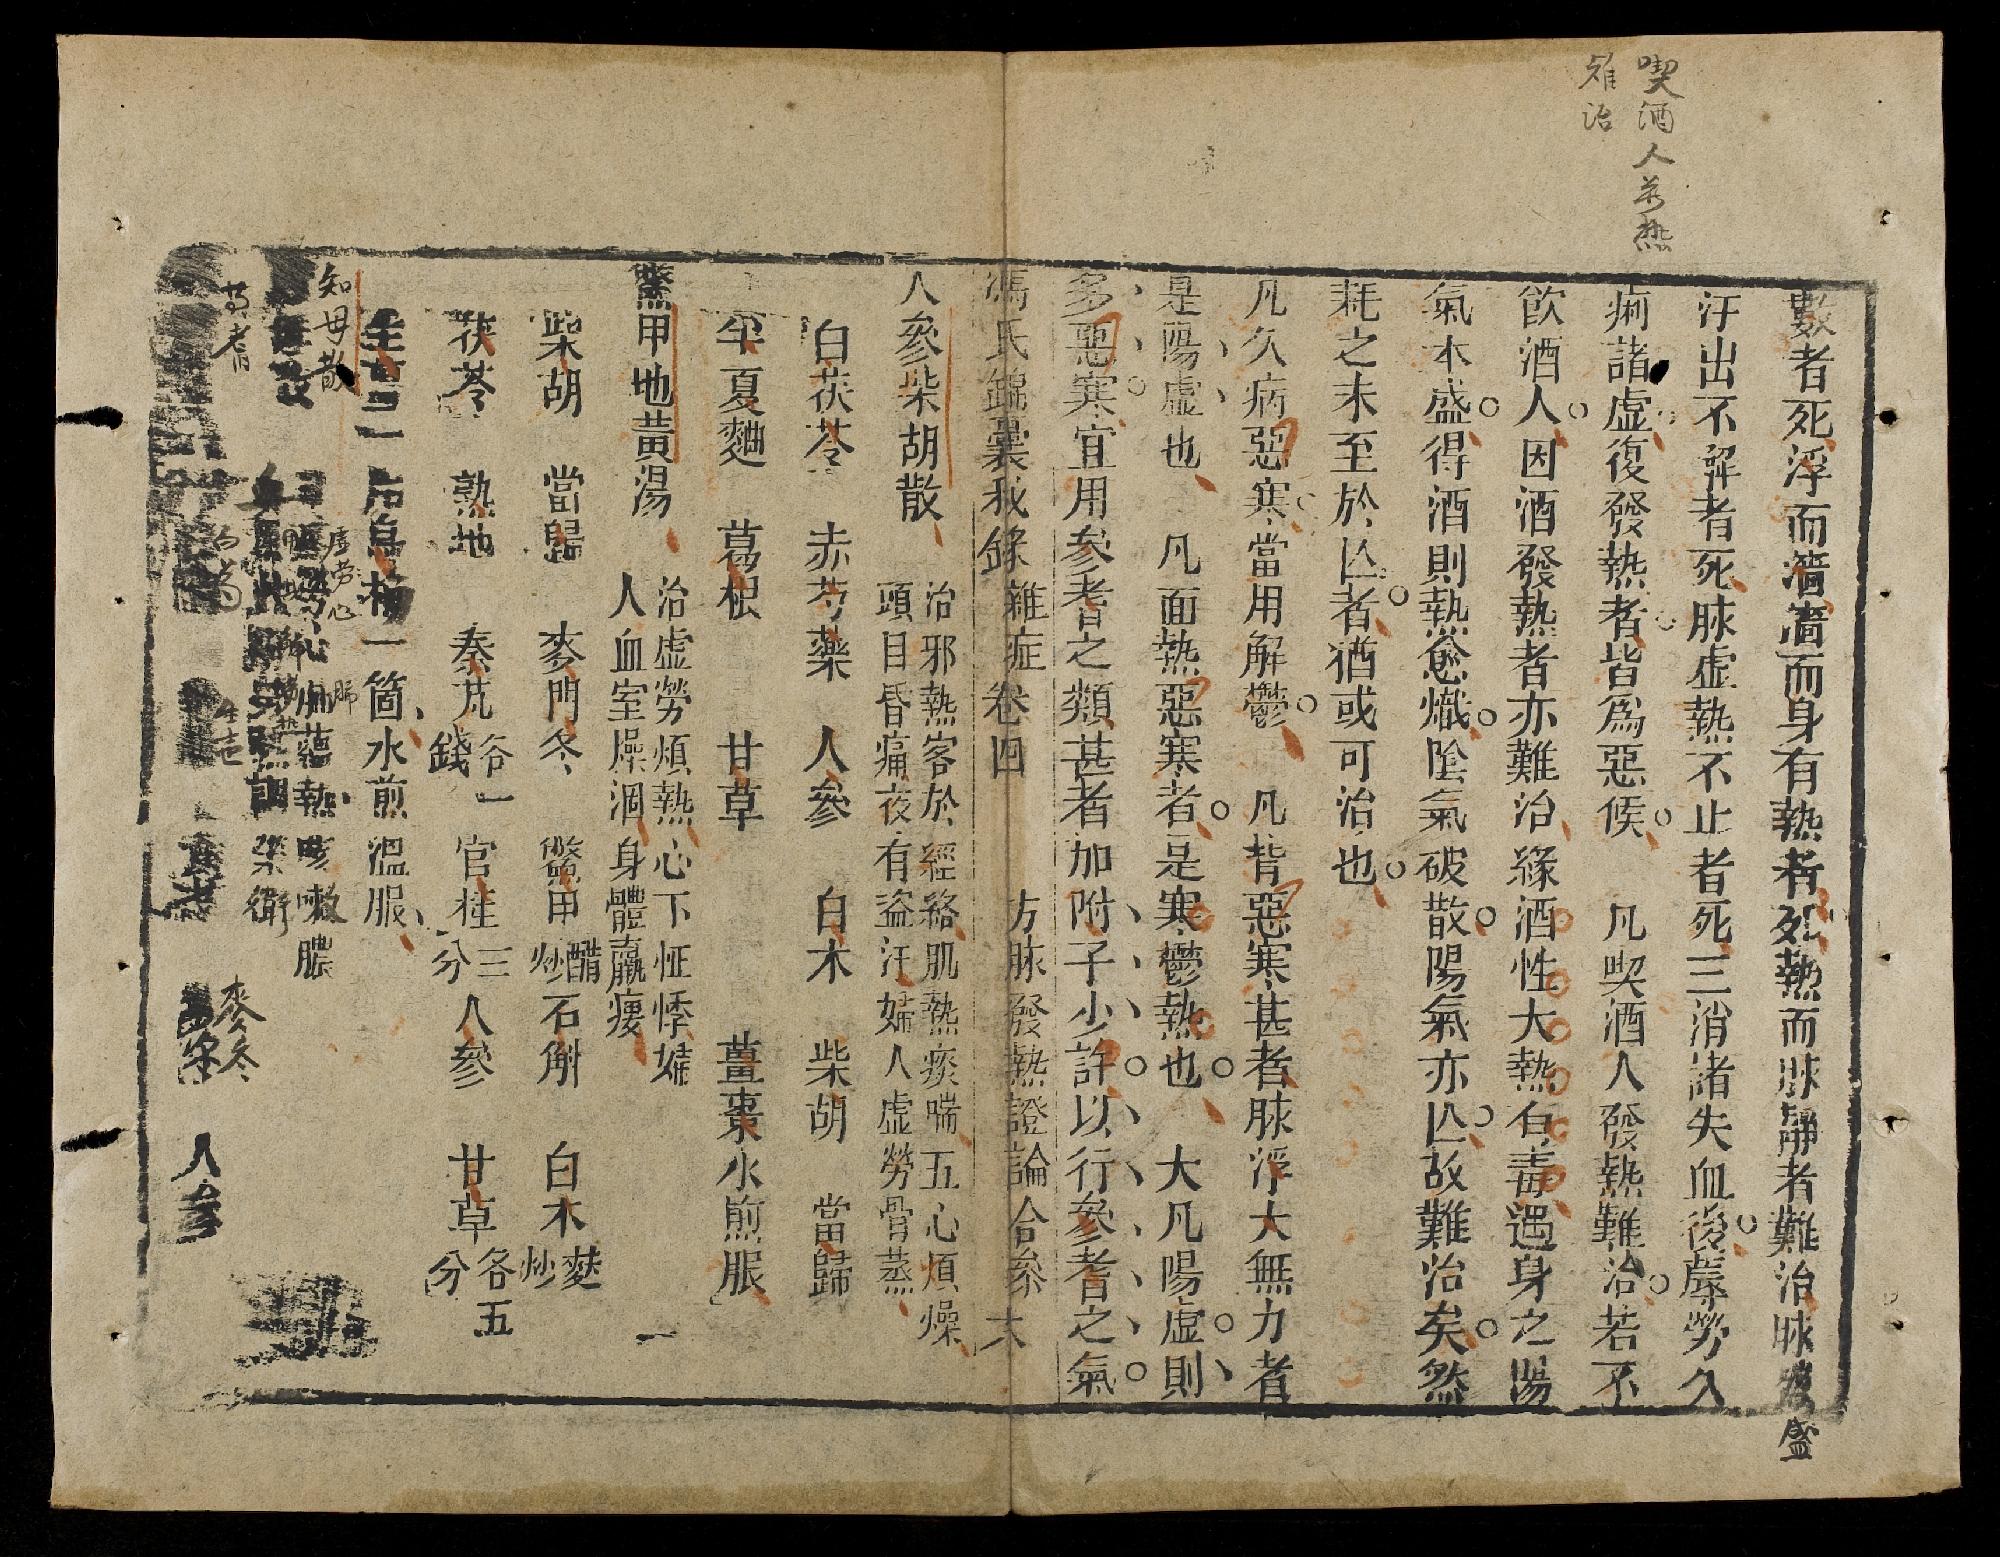 喫酒人發熱
難治
數者死浮而濇濇而身有熱者死熱而脉靜者難治脉盛
汗出不解者死脉虛熱不止者死三消諸失血後蓐勞久
痢諸虛復發熱者皆爲惡候　凡喫酒人發熱難治若不
飮酒人因酒發熱者亦難治緣酒性大熱有毒遇身之陽
氣本盛得酒則熱愈熾陰氣破散陽氣亦亾故難治矣然
耗之未至於亾者猶或可治也
凡久病惡寒當用解鬱　凡背惡寒甚者脉浮大無力者
是陽虛也　凡面熱惡寒者是寒鬱熱也　大凡陽虛則
多惡寒宜用參耆之類甚者加附子少許以行參耆之氣
馮氏錦曩秘錄　雜症　卷四　方脉發熱證論合叅　六
人參柴胡散　治邪熱客於經絡肌熱痰喘五心煩燥
頭目昏痛夜有盜汗婦人虛勞骨蒸
白茯苓　赤芍藥　人參　白朮　柴胡　當歸
半夏麯　葛根　甘草　薑棗水煎服
鱉甲地黃湯　治虛勞煩熱心下怔悸婦
人血室燥涸身體羸瘻
柴胡　當歸　麥門冬　鱉甲醋炒　石斛　白朮麩炒
茯苓　熟地　秦艽各一錢　官桂三分　人參　甘草各五分
生薑　烏梅一箇水煎溫服
知母散
虛勞心肺蘊熱咳嗽膿
榮衛
黃耆　麥冬
人參